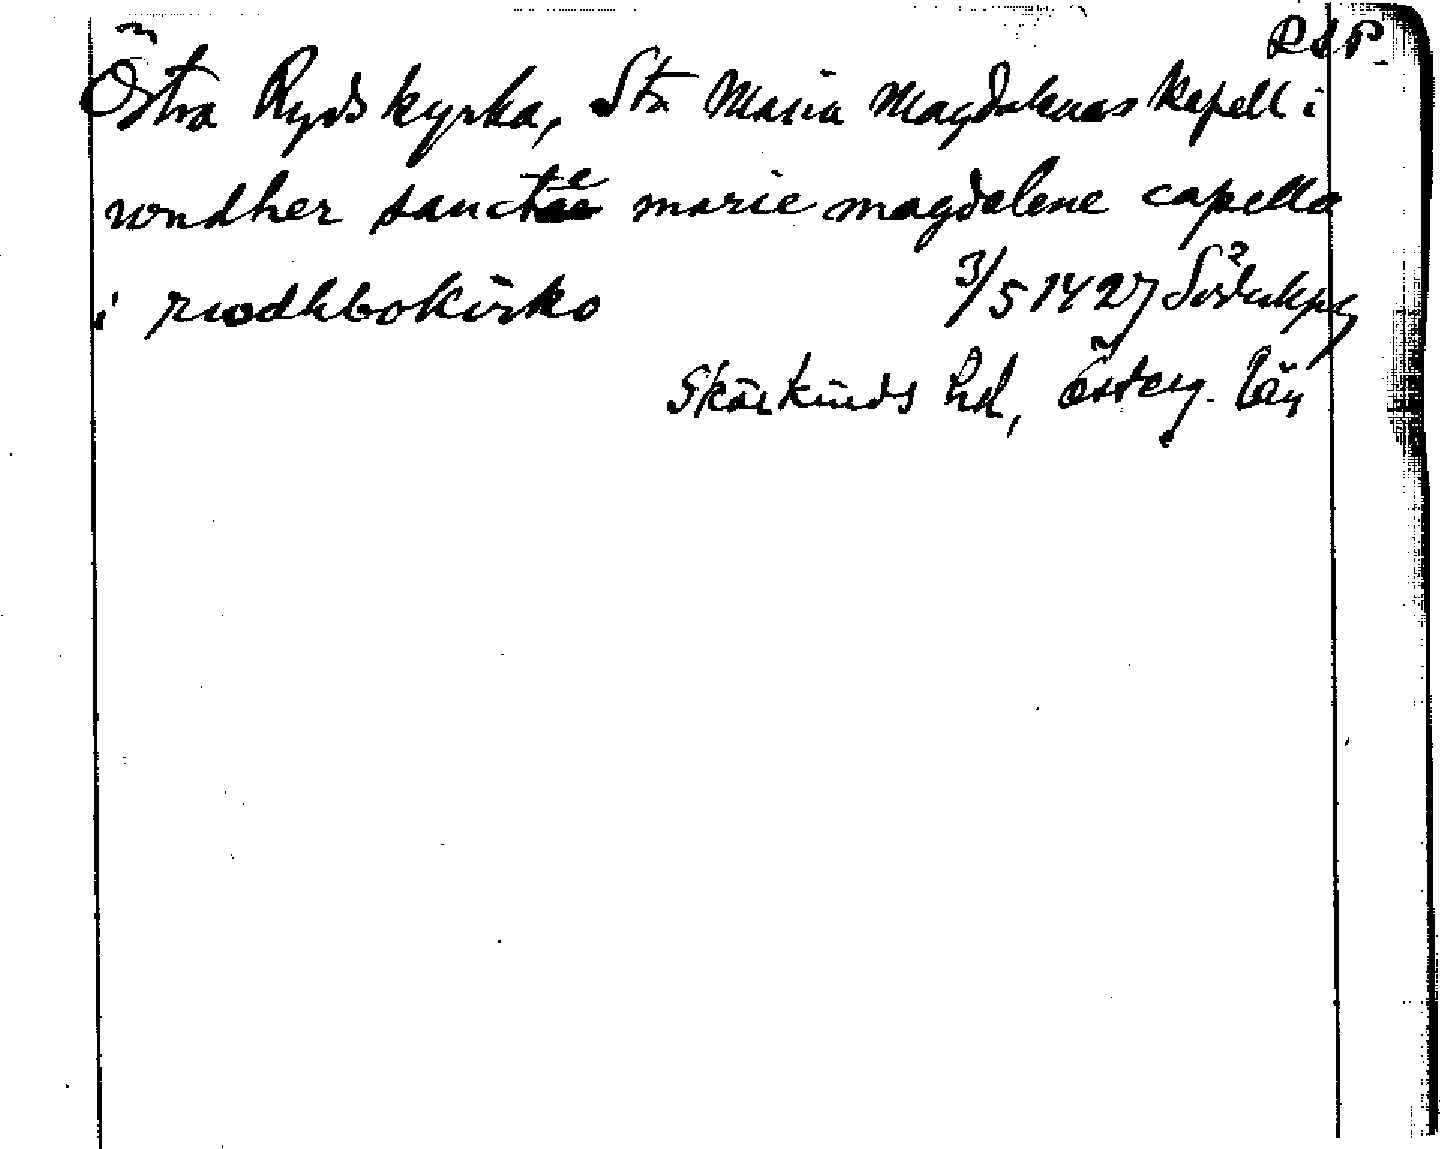 RAP.
Östra Ryds kyrka, Sta Maria Magdalenas kapell i
vondher sancte marie magdalene capella
i riodhbokirko 3/5 1427 Söderkpg
Skärkinds hd, Österg. län